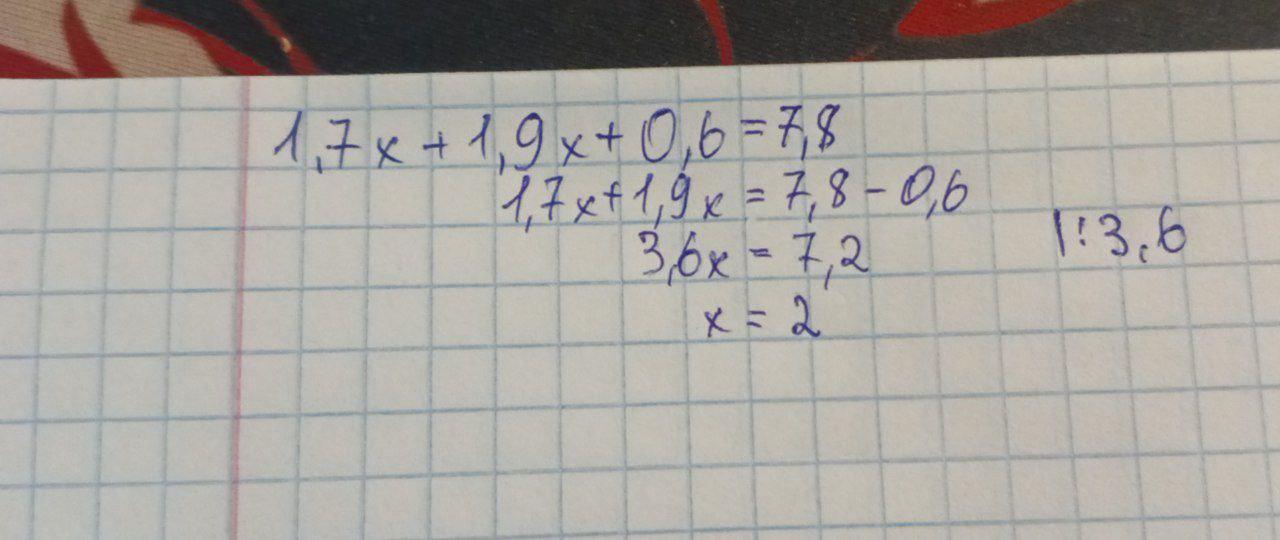 1,7x + 1,9x + 0,6 = 7,8
1,7x + 1,9x = 7,8 - 0,6
3,6x = 7,2 |:3,6
x = 2